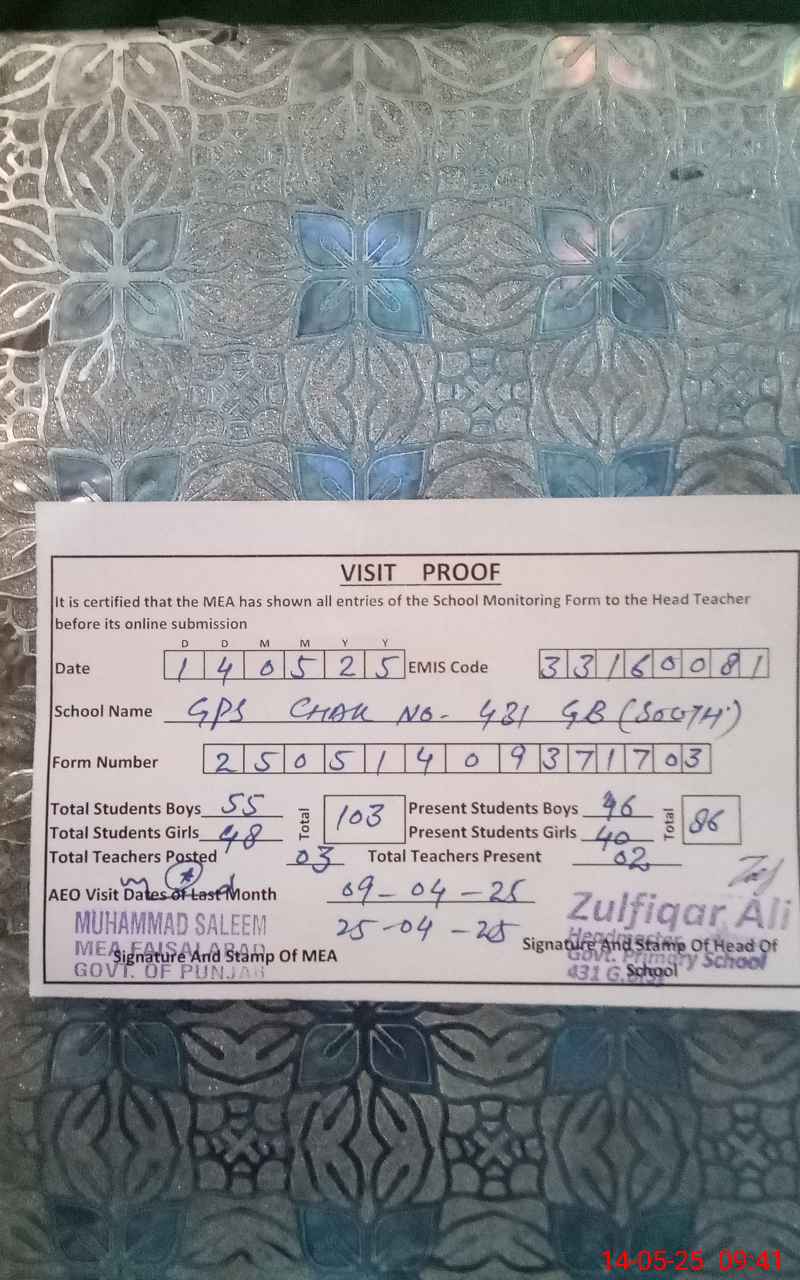 VISIT PROOF
It is certified that the MEA has shown all entries of the School Monitoring Form to the Head Teacher
before its online submission
D D M M Y Y
Date 1 4 0 5 2 5 EMIS Code 3 3 1 6 0 0 8 1
School Name GPS CHAK NO- 431 GB (SOUTH)
Form Number 2 5 0 5 1 4 0 9 3 7 1 7 0 3
Total Students Boys 55 Total 103 Present Students Boys 46 Total 86
Total Students Girls 48 Present Students Girls 40
Total Teachers Posted 03 Total Teachers Present 02
AEO Visit Dates of Last Month 09-04-25
25-04-25
MUHAMMAD SALEEM
MEA FAISALABAD
GOVT. OF PUNJAB
Signature And Stamp Of MEA
Zulfiqar Ali
Headmaster
Govt. Primary School
431 G.B
Signature And Stamp Of Head Of
School
14-05-25 09:41